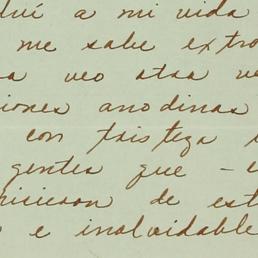 lví a mi vida
me sabe extro
a veo otra ve
iones anodinas
con tristeza
gentes que -
icieron de est
e inolvidable